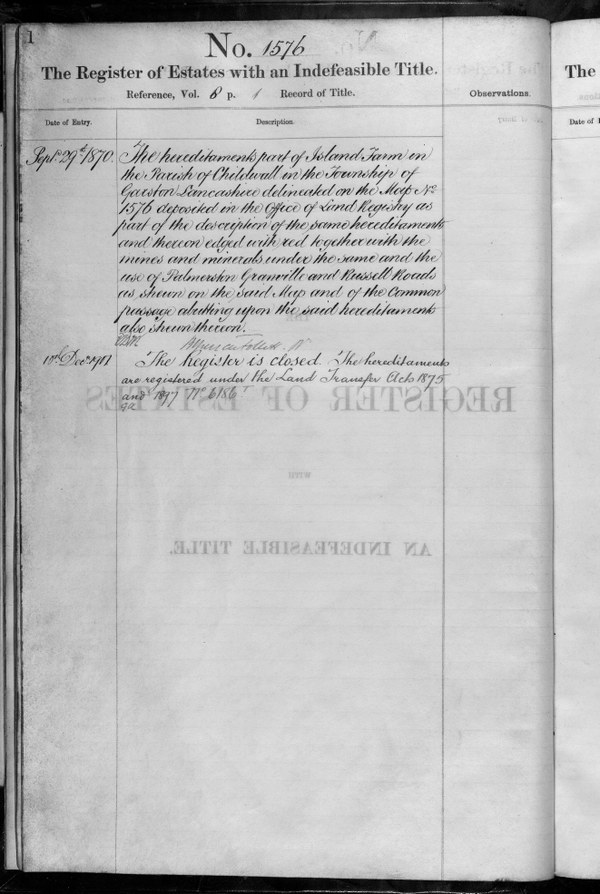 1
No. 1576
The Register of Estates with an Indefeasible Title.
Reference, Vol. 8 p. 1 Record of Title.
Observations.
Date of Entry.
Description.
Sept. 29th 1870.
The hereditaments part of Island Farm in
the Parish of Childwall in the Township of
Garston Lancashire delineated on the Map No
1576 deposited in the Office of Land Registry as
part of the description of the same hereditaments
and thereon edged with red together with the
mines and minerals under the same and the
use of Palmerston Granville and Russell Roads
as shewn on the said Map and of the Common
passage abutting upon the said hereditaments
also shewn thereon.
10th Decr. 1901
The Register is closed. The hereditaments
are registered under the Land Transfer Acts 1875
and 1897 No 6186
REGISTER OF ESTATES
WITH
AN INDEFEASIBLE TITLE.
The
Date of E